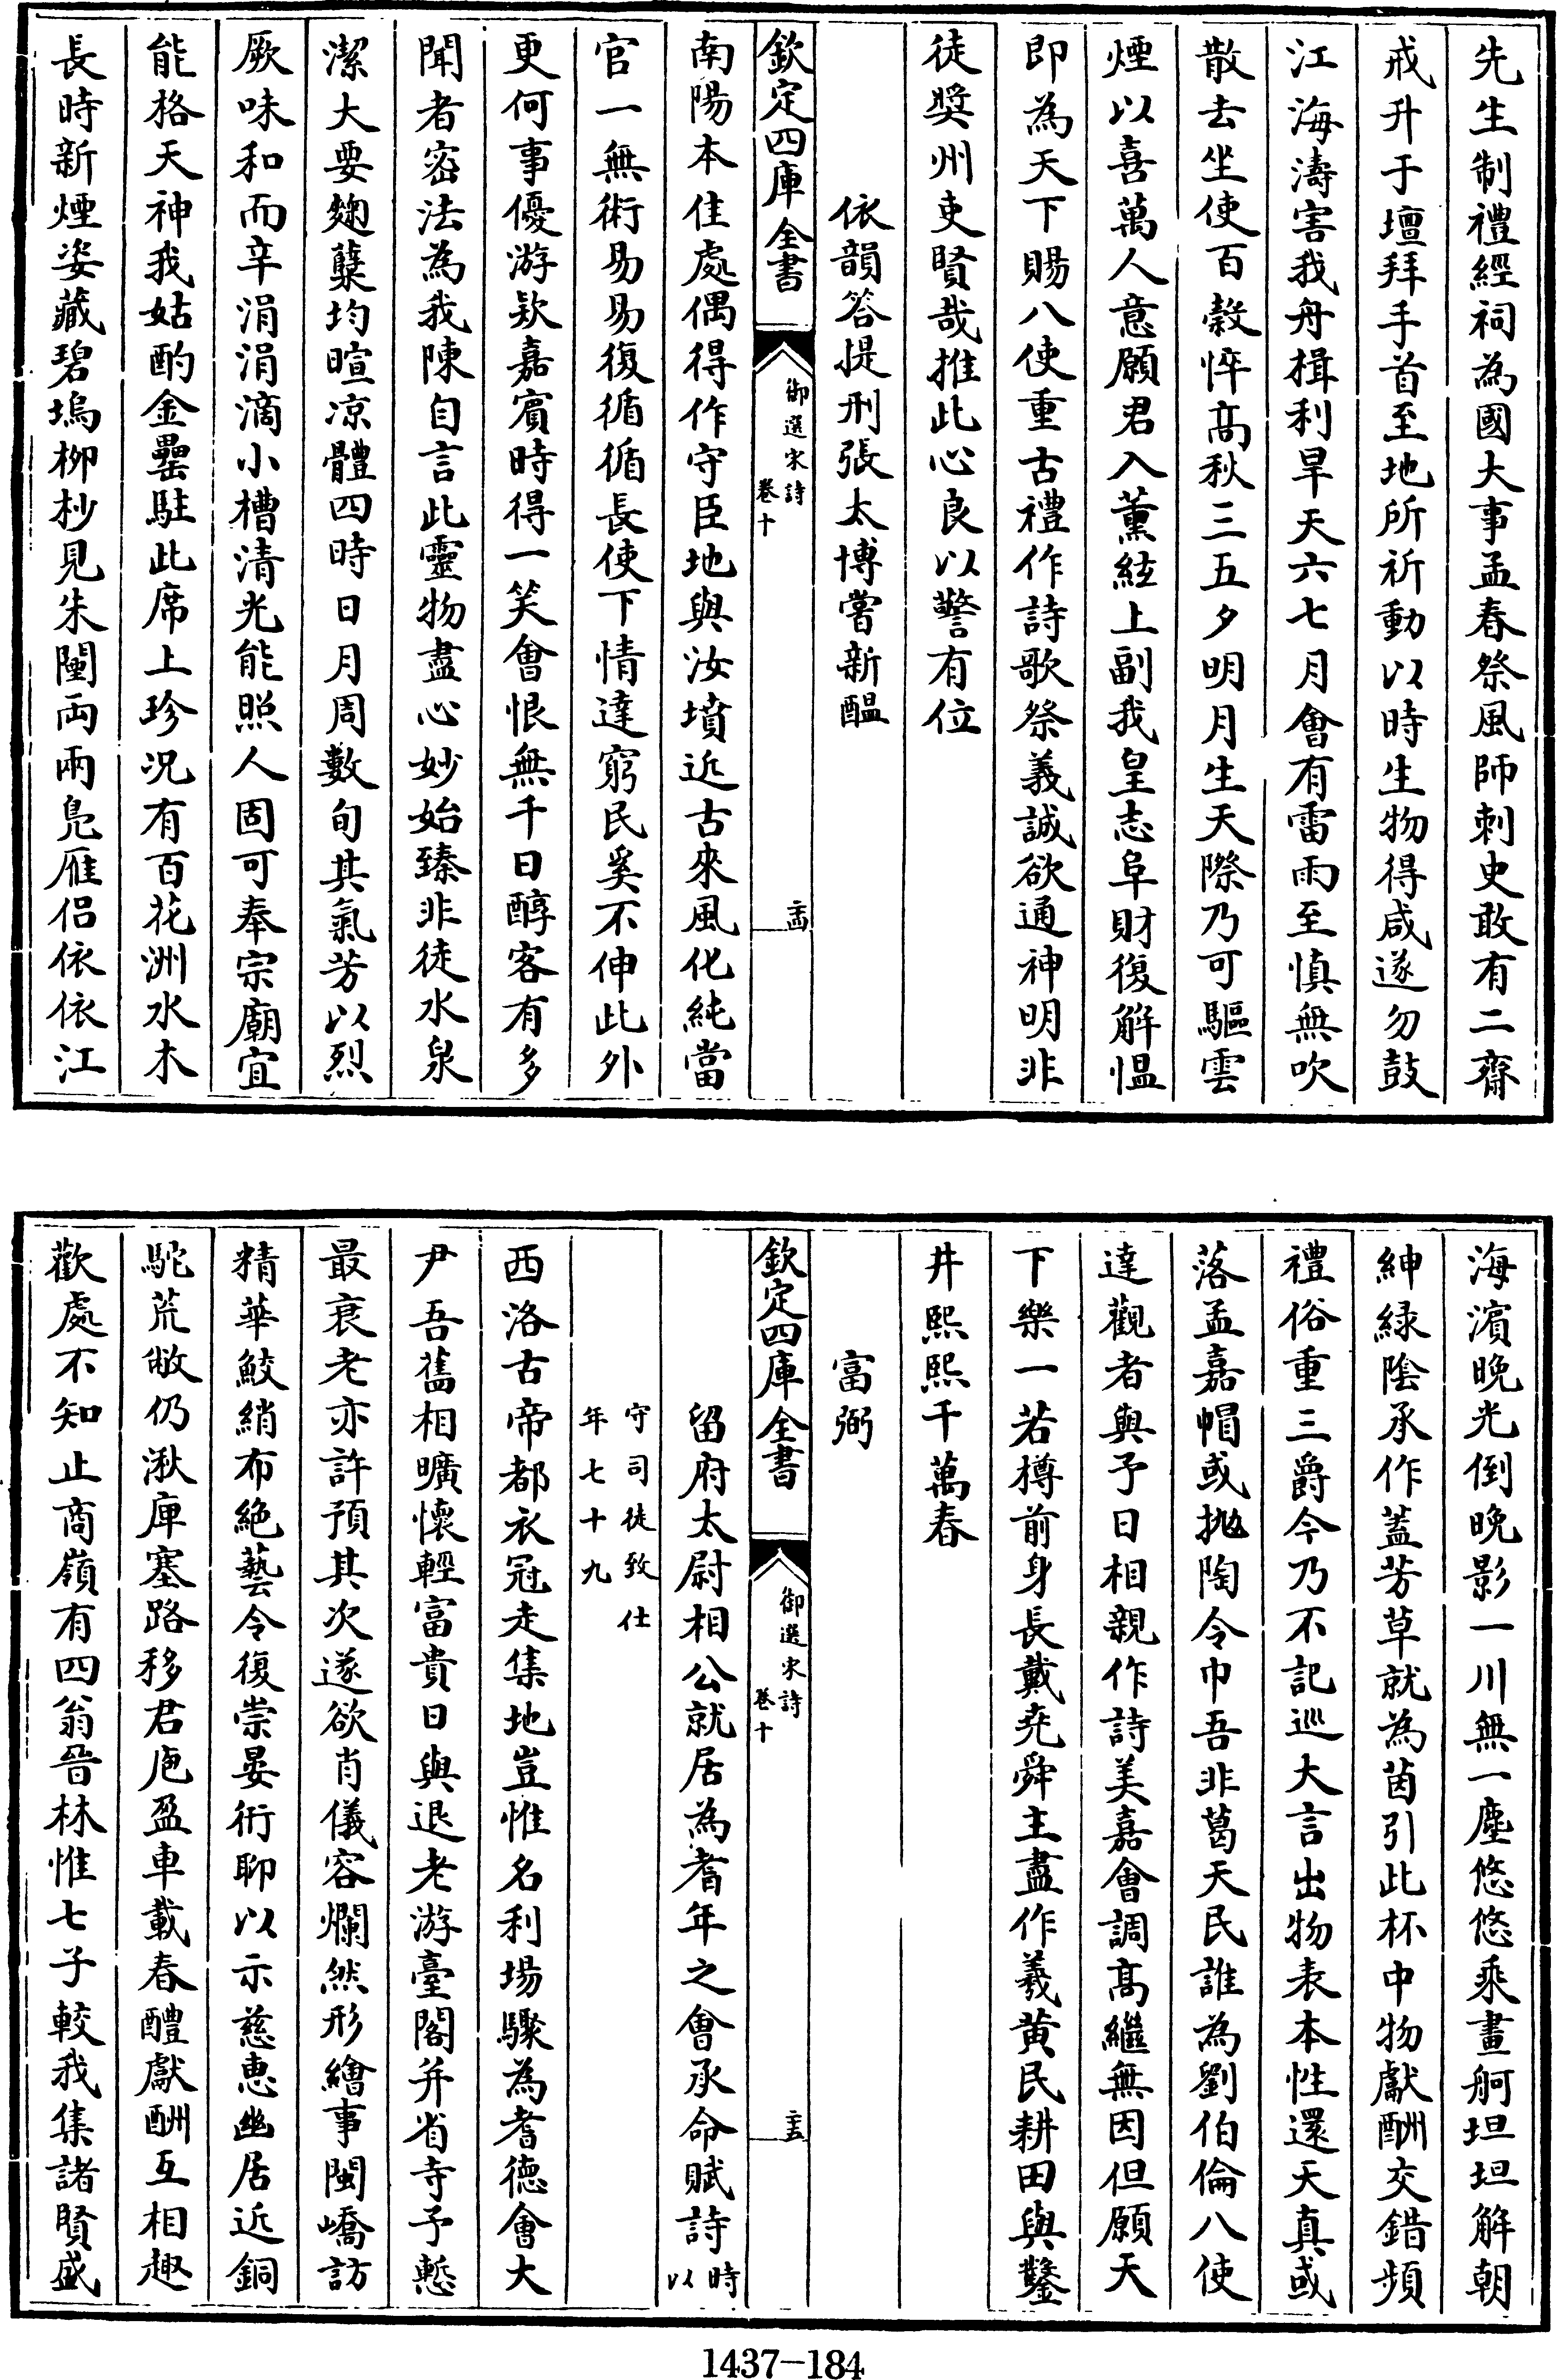 先生制禮經祠為國大事孟春祭風師刺史敢有二齋
戒升于壇拜手首至地所祈動以時生物得咸遂勿鼓
江海濤害我舟楫利旱天六七月會有雷雨至慎無吹
散去坐使百穀悴高秋三五夕明月生天際乃可驅雲
煙以喜萬人意願君入薰絃上副我皇志阜財復解愠
即為天下賜八使重古禮作詩歌祭義誠欲通神明非
徒奬州吏賢哉推此心良以警有位
依韻答提刑張太博嘗新醖
欽定四庫全書
御選宋詩
卷十
南陽本佳處偶得作守臣地與汝墳近古來風化純當
官一無術易易復循循長使下情達窮民奚不伸此外
更何事優游欵嘉賓時得一笑會恨無千日醇客有多
聞者密法為我陳自言此靈物盡心妙始臻非徒水泉
潔大要麴糵均暄凉體四時日月周數旬其氣芳以烈
厥味和而辛涓涓滴小槽清光能照人固可奉宗廟宜
能格天神我姑酌金罍駐此席上珍况有百花洲水木
長時新煙姿藏碧塢柳杪見朱闉兩兩鳧雁侣依依江
海濱晚光倒晚影一川無一塵悠悠乘畫舸坦坦解朝
紳緑陰承作蓋芳草就為茵引此杯中物獻酬交錯頻
禮俗重三爵今乃不記巡大言出物表本性還天真或
落孟嘉帽或抛陶令巾吾非葛天民誰為劉伯倫八使
達觀者與予日相親作詩美嘉會調高繼無因但願天
下樂一若樽前身長戴堯舜主盡作羲黄民耕田與鑿
井熙熙千萬春
富弼
欽定四庫全書
御選宋詩
卷十
留府太尉相公就居為耆年之會承命賦詩時以
守司徒致仕
年七十九
西洛古帝都衣冠走集地豈惟名利場驟為耆德會大
尹吾舊相曠懷輕富貴日與退老游臺閣并省寺予慙
最衰老亦許預其次遂欲肖儀容爛然形繪事閩嶠訪
精華鮫綃布絶藝令復崇晏術聊以示慈惠幽居近銅
駝荒敝仍湫庳塞路移君庖盈車載春醴獻酬互相趣
歡處不知止商嶺有四翁晉林惟七子較我集諸賢盛
1437—184